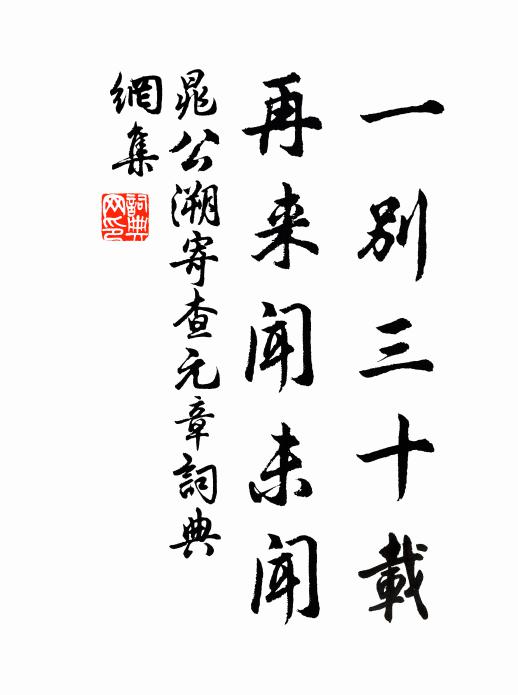 一别三十載
再来聞未聞
晁公溯寄查元章詞典
網集
詞典
网印